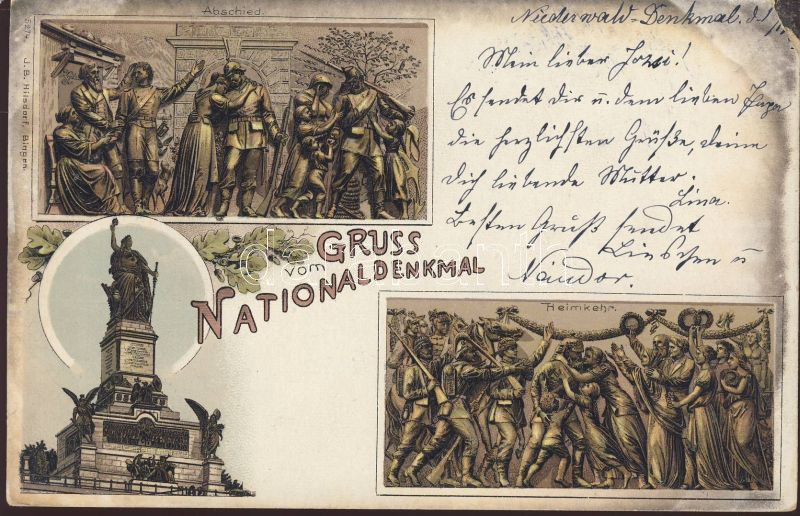 Abschied.
5274 J. B. Hilsdorf, Bingen.
Niederwald-Denkmal, d.
Mein lieber Jozsi!
Es sendet dir u. dem lieben Papa
die herzlichsten Grüße, deine
dich liebende Mutter.
Lina.
Besten Gruß sendet
Lieschen u
Nándor.
GRUSS
vom
NATIONALDENKMAL
Heimkehr.